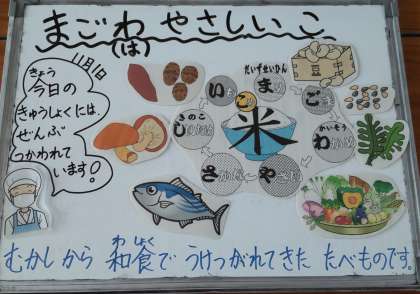 まごわやさしいこ
(は)
11月1日
きょう
今日の
きゅうしょくには、
ぜんぶ
つかわれて
います!
だいずせいひん
ま
ご
かいそう
わ
や
さ
きのこ
し
い
こ
米
豆
中
わしょく
むかしから 和食で うけつがれてきた たべものです。